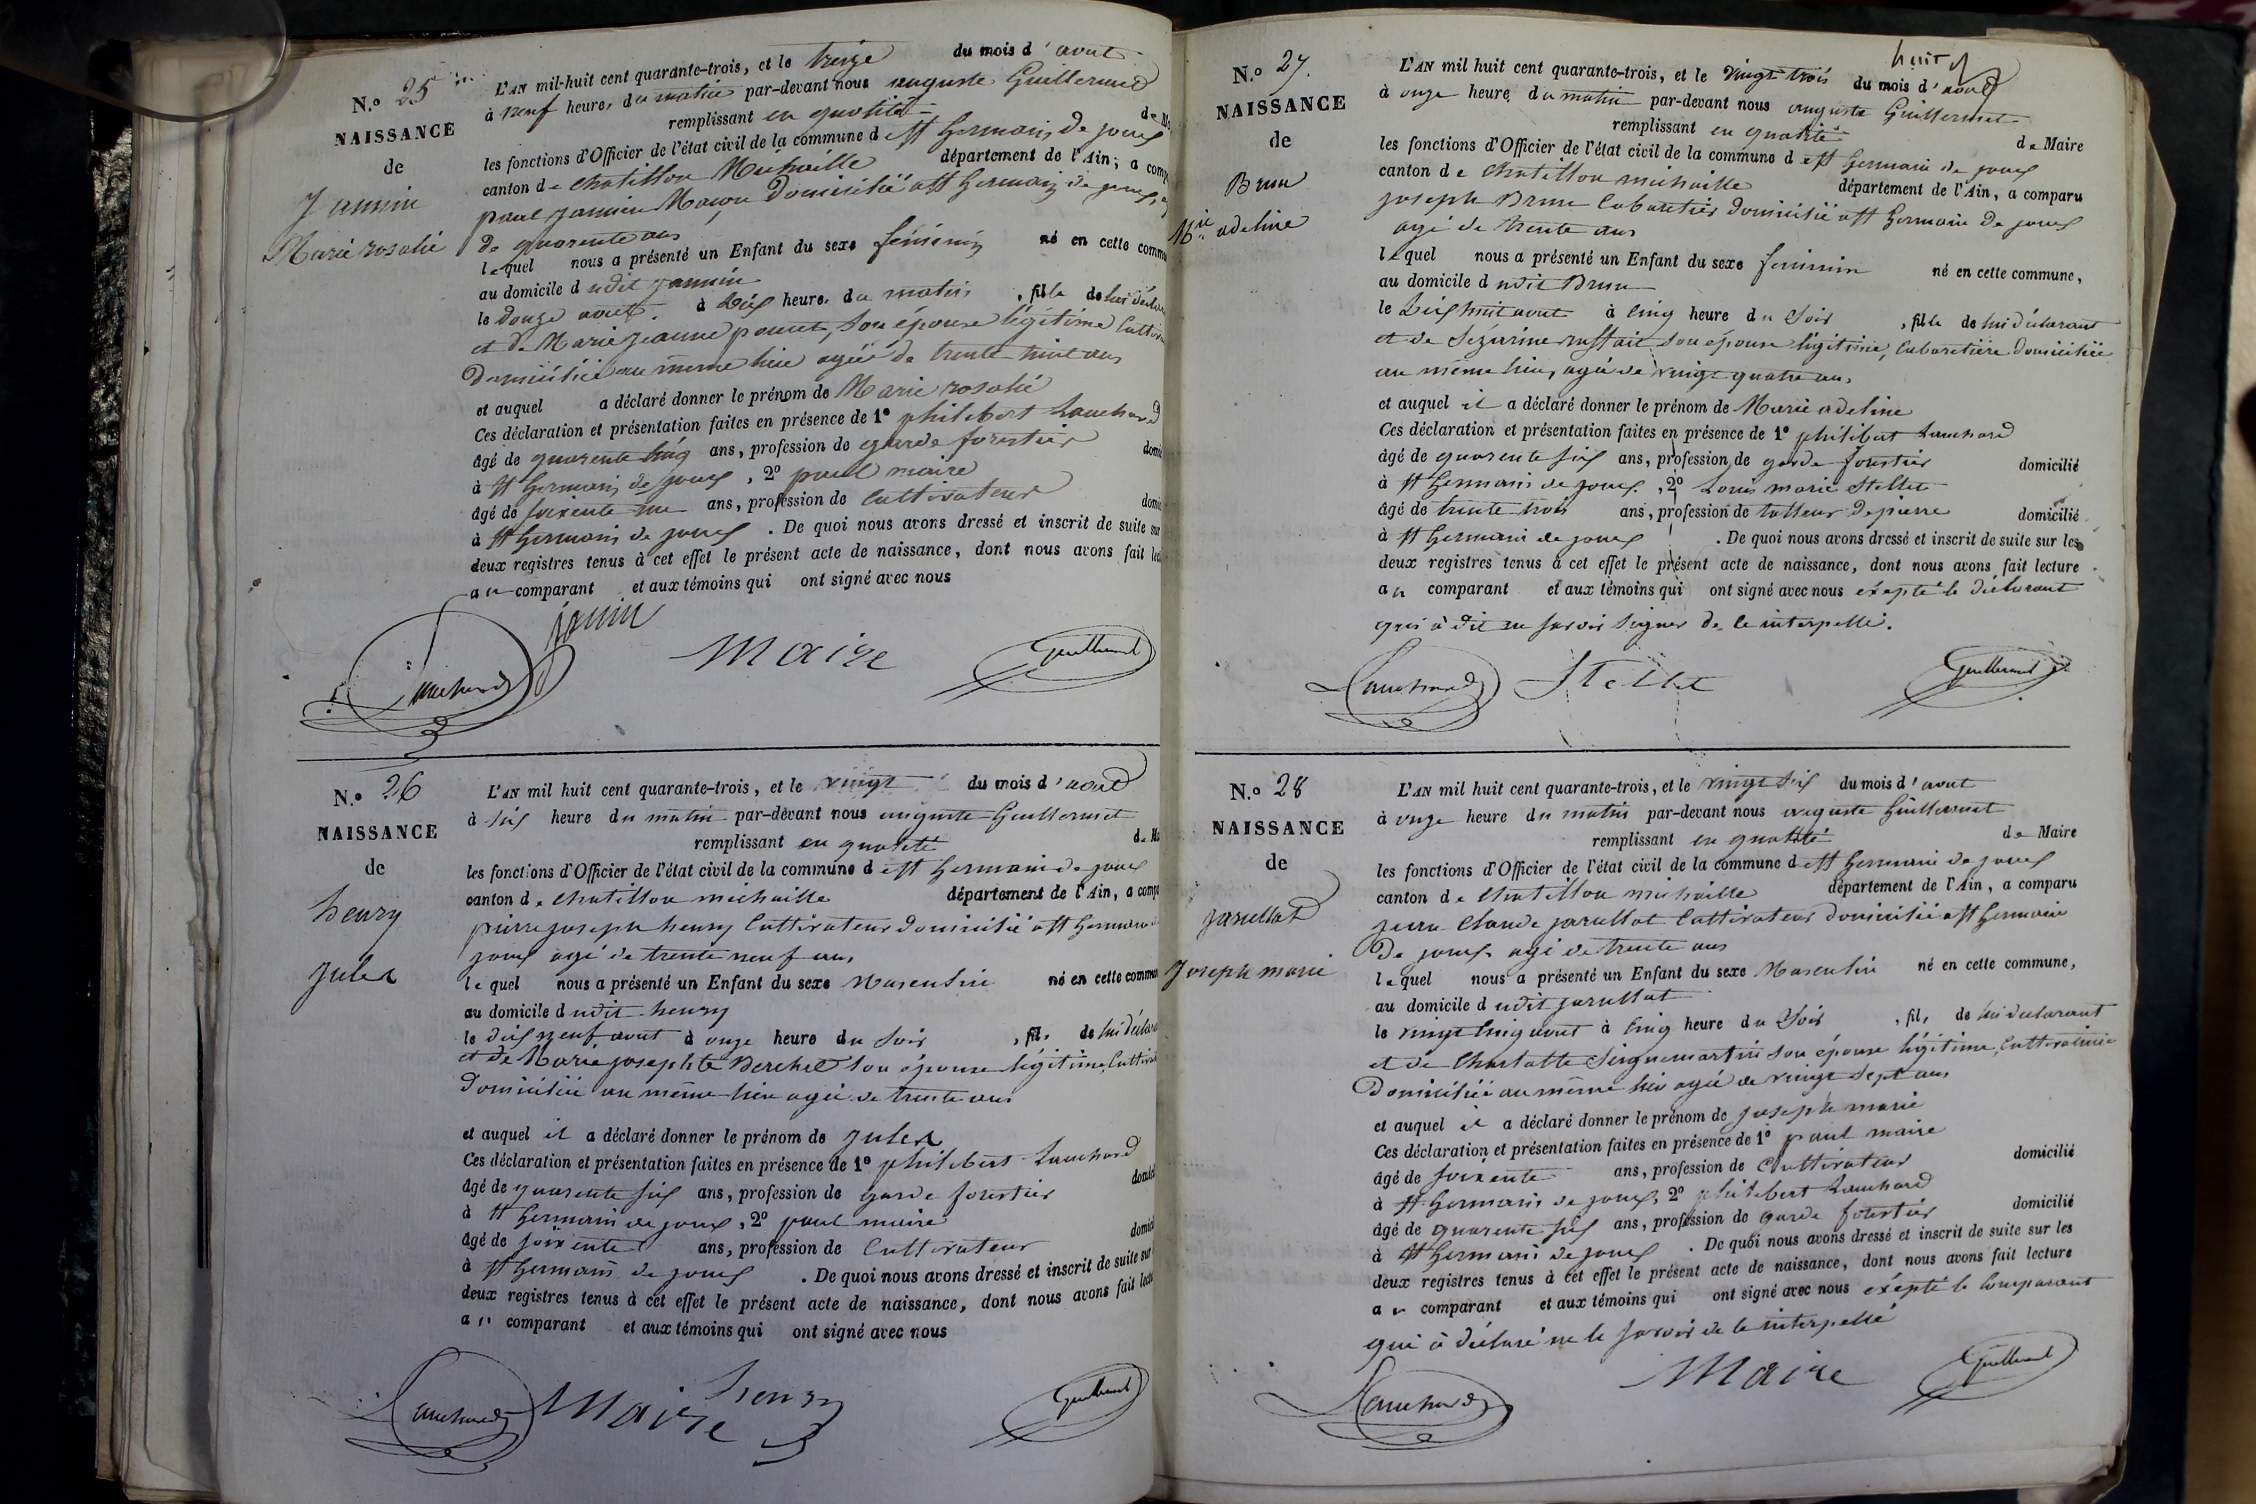 N.o 25
NAISSANCE
de
Jannin
Marie rosalie
L'AN mil-huit cent quarante-trois, et le treize du mois d'aout
à neuf heures du matin par-devant nous auguste Guillermet
remplissant en qualité de M
les fonctions d'Officier de l'état civil de la commune de st Germain de joux
canton de Chatillon Michaille département de l'Ain, a comp
paul jannin Maçon Domicilié a st Germain de joux,
de quarente ans
lequel nous a présenté un Enfant du sexe féminin né en cette commu
au domicile dudit jannin
le douze aout à dix heures du matin, fille de lui décla
et de Marie jeanne poncet, son épouse légitime Cultiv
Domiciliée au même lieu agée de trente huit ans
et auquel a déclaré donner le prénom de Marie rosalie
Ces déclaration et présentation faites en présence de 1º philibert Lauchard
âgé de quarente cinq ans, profession de garde forestier domi
à st Germain de joux, 2º paul maire
âgé de soixente un ans, profession de Cultivateur domi
à st Germain de joux. De quoi nous avons dressé et inscrit de suite sur
deux registres tenus à cet effet le présent acte de naissance, dont nous avons fait lec
au comparant et aux témoins qui ont signé avec nous
janin
Lauchard Maire Guillermet
N.o 26
NAISSANCE
de
henry
Jules
L'AN mil huit cent quarante-trois, et le vingt du mois d'aout
à six heure du matin par-devant nous auguste Guillermet
remplissant en qualité de Ma
les fonctions d'Officier de l'état civil de la commune de st Germain de joux
canton de Chatillon michaille département de l'Ain, a compa
pierre joseph henry Cultivateur domicilié a st Germain
joux agé de trente neuf ans,
lequel nous a présenté un Enfant du sexe Masculin né en cette commun
au domicile dudit henry
le dix neuf aout à onze heure du soir, fils de lui décla
et de Marie josephte Berchet son épouse légitime, Cultiv
Domiciliée au même lieu agée de trente ans
et auquel il a déclaré donner le prénom de Jules
Ces déclaration et présentation faites en présence de 1º philibert Lauchard
âgé de quarente six ans, profession de garde forestier domici
à st Germain de joux, 2º paul maire
âgé de soixente ans, profession de Cultivateur domici
à st Germain de joux. De quoi nous avons dressé et inscrit de suite sur
deux registres tenus à cet effet le présent acte de naissance, dont nous avons fait lectu
au comparant et aux témoins qui ont signé avec nous
Lauchard Maire henry Guillermet
N.o 27.
NAISSANCE
de
Brun
Mie adeline
huit
L'AN mil huit cent quarante-trois, et le vingt trois du mois d'aout
à onze heure du matin par-devant nous auguste Guillermet
remplissant en qualité de Maire
les fonctions d'Officier de l'état civil de la commune de st Germain de joux
canton de Chatillon michaille département de l'Ain, a comparu
joseph Brun Cabaretier domicilié a st Germain de joux
agé de trente ans
lequel nous a présenté un Enfant du sexe feminin né en cette commune,
au domicile dudit Brun
le dix huit aout à cinq heure du soir, fille de lui déclarant
et de Sézarine ruffait son épouse légitime, Cabaretière domiciliée
au même lieu, agée de vingt quatre ans,
et auquel il a déclaré donner le prénom de Marie adeline
Ces déclaration et présentation faites en présence de 1º philibert Lauchard
âgé de quarente six ans, profession de garde forestier domicilié
à st Germain de joux, 2º Louis marie Stellet
âgé de trente trois ans, profession de tailleur de pierre domicilié
à st Germain de joux. De quoi nous avons dressé et inscrit de suite sur les
deux registres tenus à cet effet le présent acte de naissance, dont nous avons fait lecture
au comparant et aux témoins qui ont signé avec nous éxepté le déclarant
qui a dit ne savoir signer de le interpellé.
Lauchard Stellet Guillermet
N.o 28
NAISSANCE
de
jarullat
Joseph marie
L'AN mil huit cent quarante-trois, et le vingt six du mois d'aout
à onze heure du matin par-devant nous auguste Guillermet
remplissant en qualité de Maire
les fonctions d'Officier de l'état civil de la commune de st Germain de joux
canton de Chatillon michaille département de l'Ain, a comparu
jean Claude jarullat Cultivateur domicilié a st Germain
De joux agé de trente ans
lequel nous a présenté un Enfant du sexe Masculin né en cette commune,
au domicile dudit jarullat
le vingt cinq aout à cinq heure du soir, fils de lui déclarant
et de Charlotte Seignemartin son épouse légitime, Cultivatrice
Domiciliée au même lieu agée de vingt sept ans
et auquel il a déclaré donner le prénom de joseph marie
Ces déclaration et présentation faites en présence de 1º paul maire
âgé de soixente ans, profession de Cultivateur domicilié
à st Germain de joux, 2º philibert Lauchard
âgé de quarente six ans, profession de garde forestier domicilié
à st Germain de joux. De quoi nous avons dressé et inscrit de suite sur les
deux registres tenus à cet effet le présent acte de naissance, dont nous avons fait lecture
au comparant et aux témoins qui ont signé avec nous éxepté le comparant
qui a déclaré ne le savoir de le interpellé
Lauchard Maire Guillermet